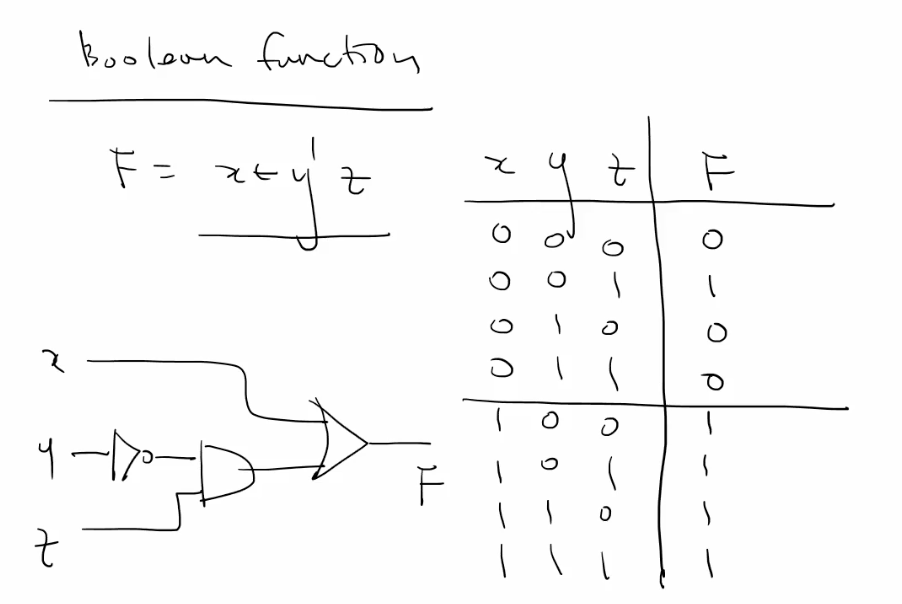 Boolean function
F = x + y' z
x y z F
0 0 0 0
0 0 1 1
0 1 0 0
0 1 1 0
1 0 0 1
1 0 1 1
1 1 0 1
1 1 1 1
x
y
z
F